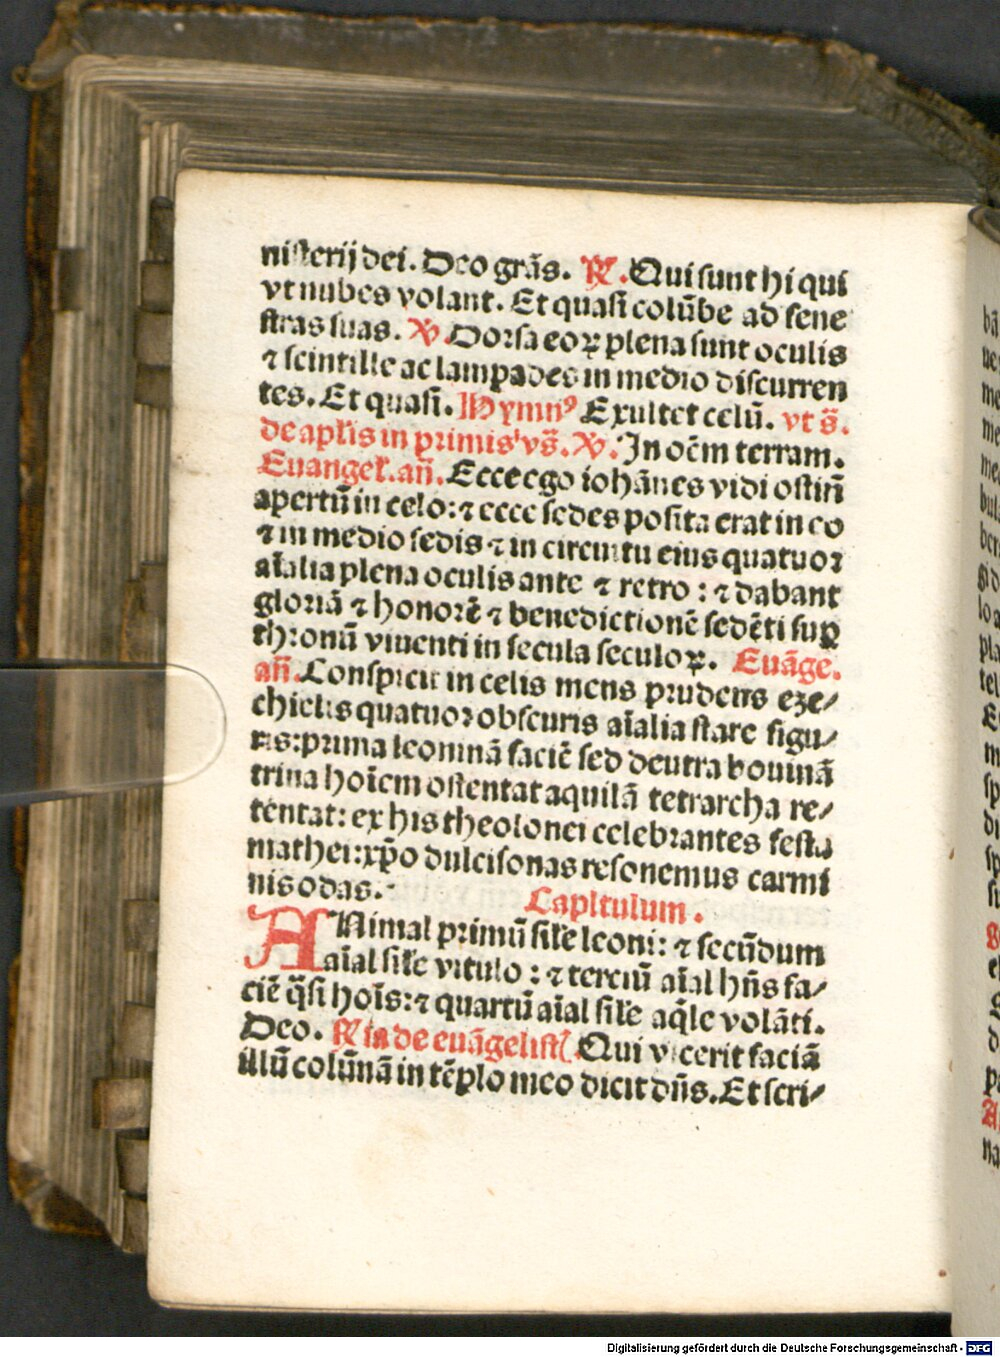 nisterij dei. Deo grãs. ℟. Qui sunt hi qui
vt nubes volant. Et quasi colũbe ad fene
stras suas. ℣. Dorsa eoꝝ plena sunt oculis
⁊ scintille ac lampades in medio discurren
tes. Et quasi. Hymnꝰ Exultet celũ. vt s̃.
de aplis in primis vs̃. ℣. In oẽm terram.
Euangel. añ. Ecce ego iohãnes vidi ostiũ
apertũ in celo: ⁊ ecce sedes posita erat in eo
⁊ in medio sedis ⁊ in circuitu eius quatuor
aĩalia plena oculis ante ⁊ retro: ⁊ dabant
gloriã ⁊ honorẽ ⁊ benedictionẽ sedẽti suꝑ
thronũ viuenti in secula seculoꝝ. Euãge.
añ. Conspicit in celis mens prudens eze⸗
chielis quatuor obscuris aĩalia stare figu⸗
ris: prima leoninã faciẽ sed deutra bouinã
trina hoĩem ostentat aquilã tetrarcha re⸗
tentat: ex his theolonei celebrantes festa
mathei: xp̃o dulcisonas resonemus carmi
nis odas.
Capitulum.
ANimal primũ sil̃e leoni: ⁊ secũdum
aĩal sil̃e vitulo: ⁊ terciũ aĩal hñs fa⸗
ciẽ q̃si hoĩs: ⁊ quartũ aĩal sil̃e aq̃le volãti.
Deo. ℟ia de euãgelist. Qui vicerit faciã
illũ colũnã in tẽplo meo dicit dñs. Et scri⸗
Digitalisierung gefördert durch die Deutsche Forschungsgemeinschaft - DFG